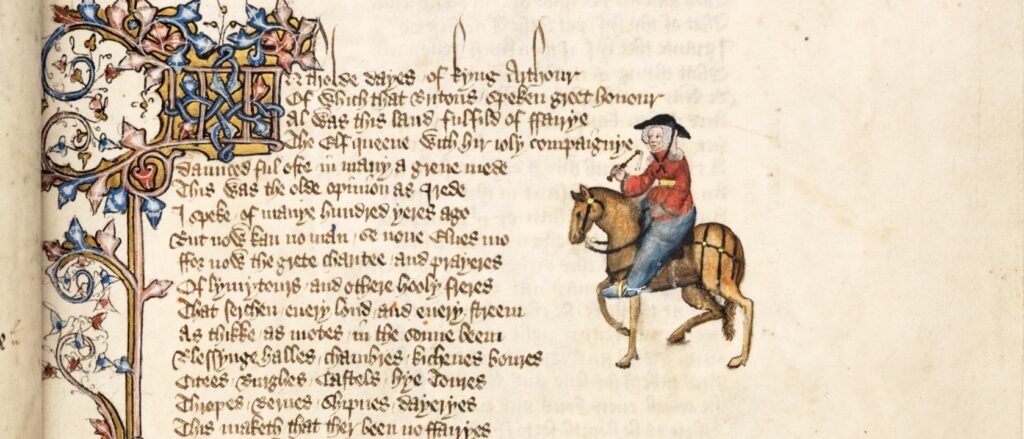 IN tholde dayes of kyng Arthour
Of which that Britons speken greet honour
Al was this land fulfild of ffairye
The Elf queene with hir ioly compaignye
Daunced ful ofte in many a grene mede
This was the olde opinion as I rede
I speke of manye hundred yeres ago
But now kan no man se none Elues mo
ffor now the grete charitee and prayeres
Of lymytours and othere hooly freres
That serchen euery lond and euery streem
As thikke as motes in the sonne beem
Blessynge halles chambres kichenes boures
Citees Burghes Castels hye Toures
Thropes Bernes Shipnes dayeryes
This maketh that ther been no ffairyes